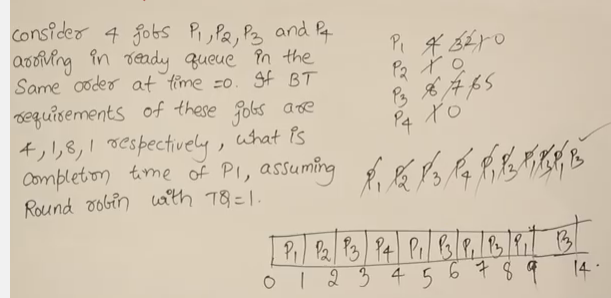 consider 4 jobs P1, P2, P3 and P4
arriving in ready queue in the
Same order at time =0. If BT
requirements of these jobs are
4, 1, 8, 1 respectively, what is
Completion time of P1, assuming
Round robin with TQ=1.
P1 4 3 2 1 0
P2 1 0
P3 8 7 6 5
P4 1 0
P1 P2 P3 P4 P1 P3 P1 P3 P1 P3 ✓
P1 P2 P3 P4 P1 P3 P1 P3 P1 P3
0 1 2 3 4 5 6 7 8 9 14.